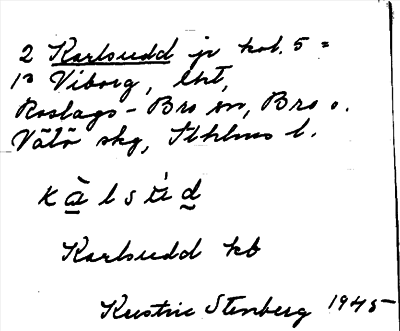 2 Karlsudd jr kol. 5 =
1³ Viborg, lht,
Roslags-Bro sn, Bro o.
Vätö skg, Sthlms l.
Karlsudd kb
Kustric Stenberg 1945